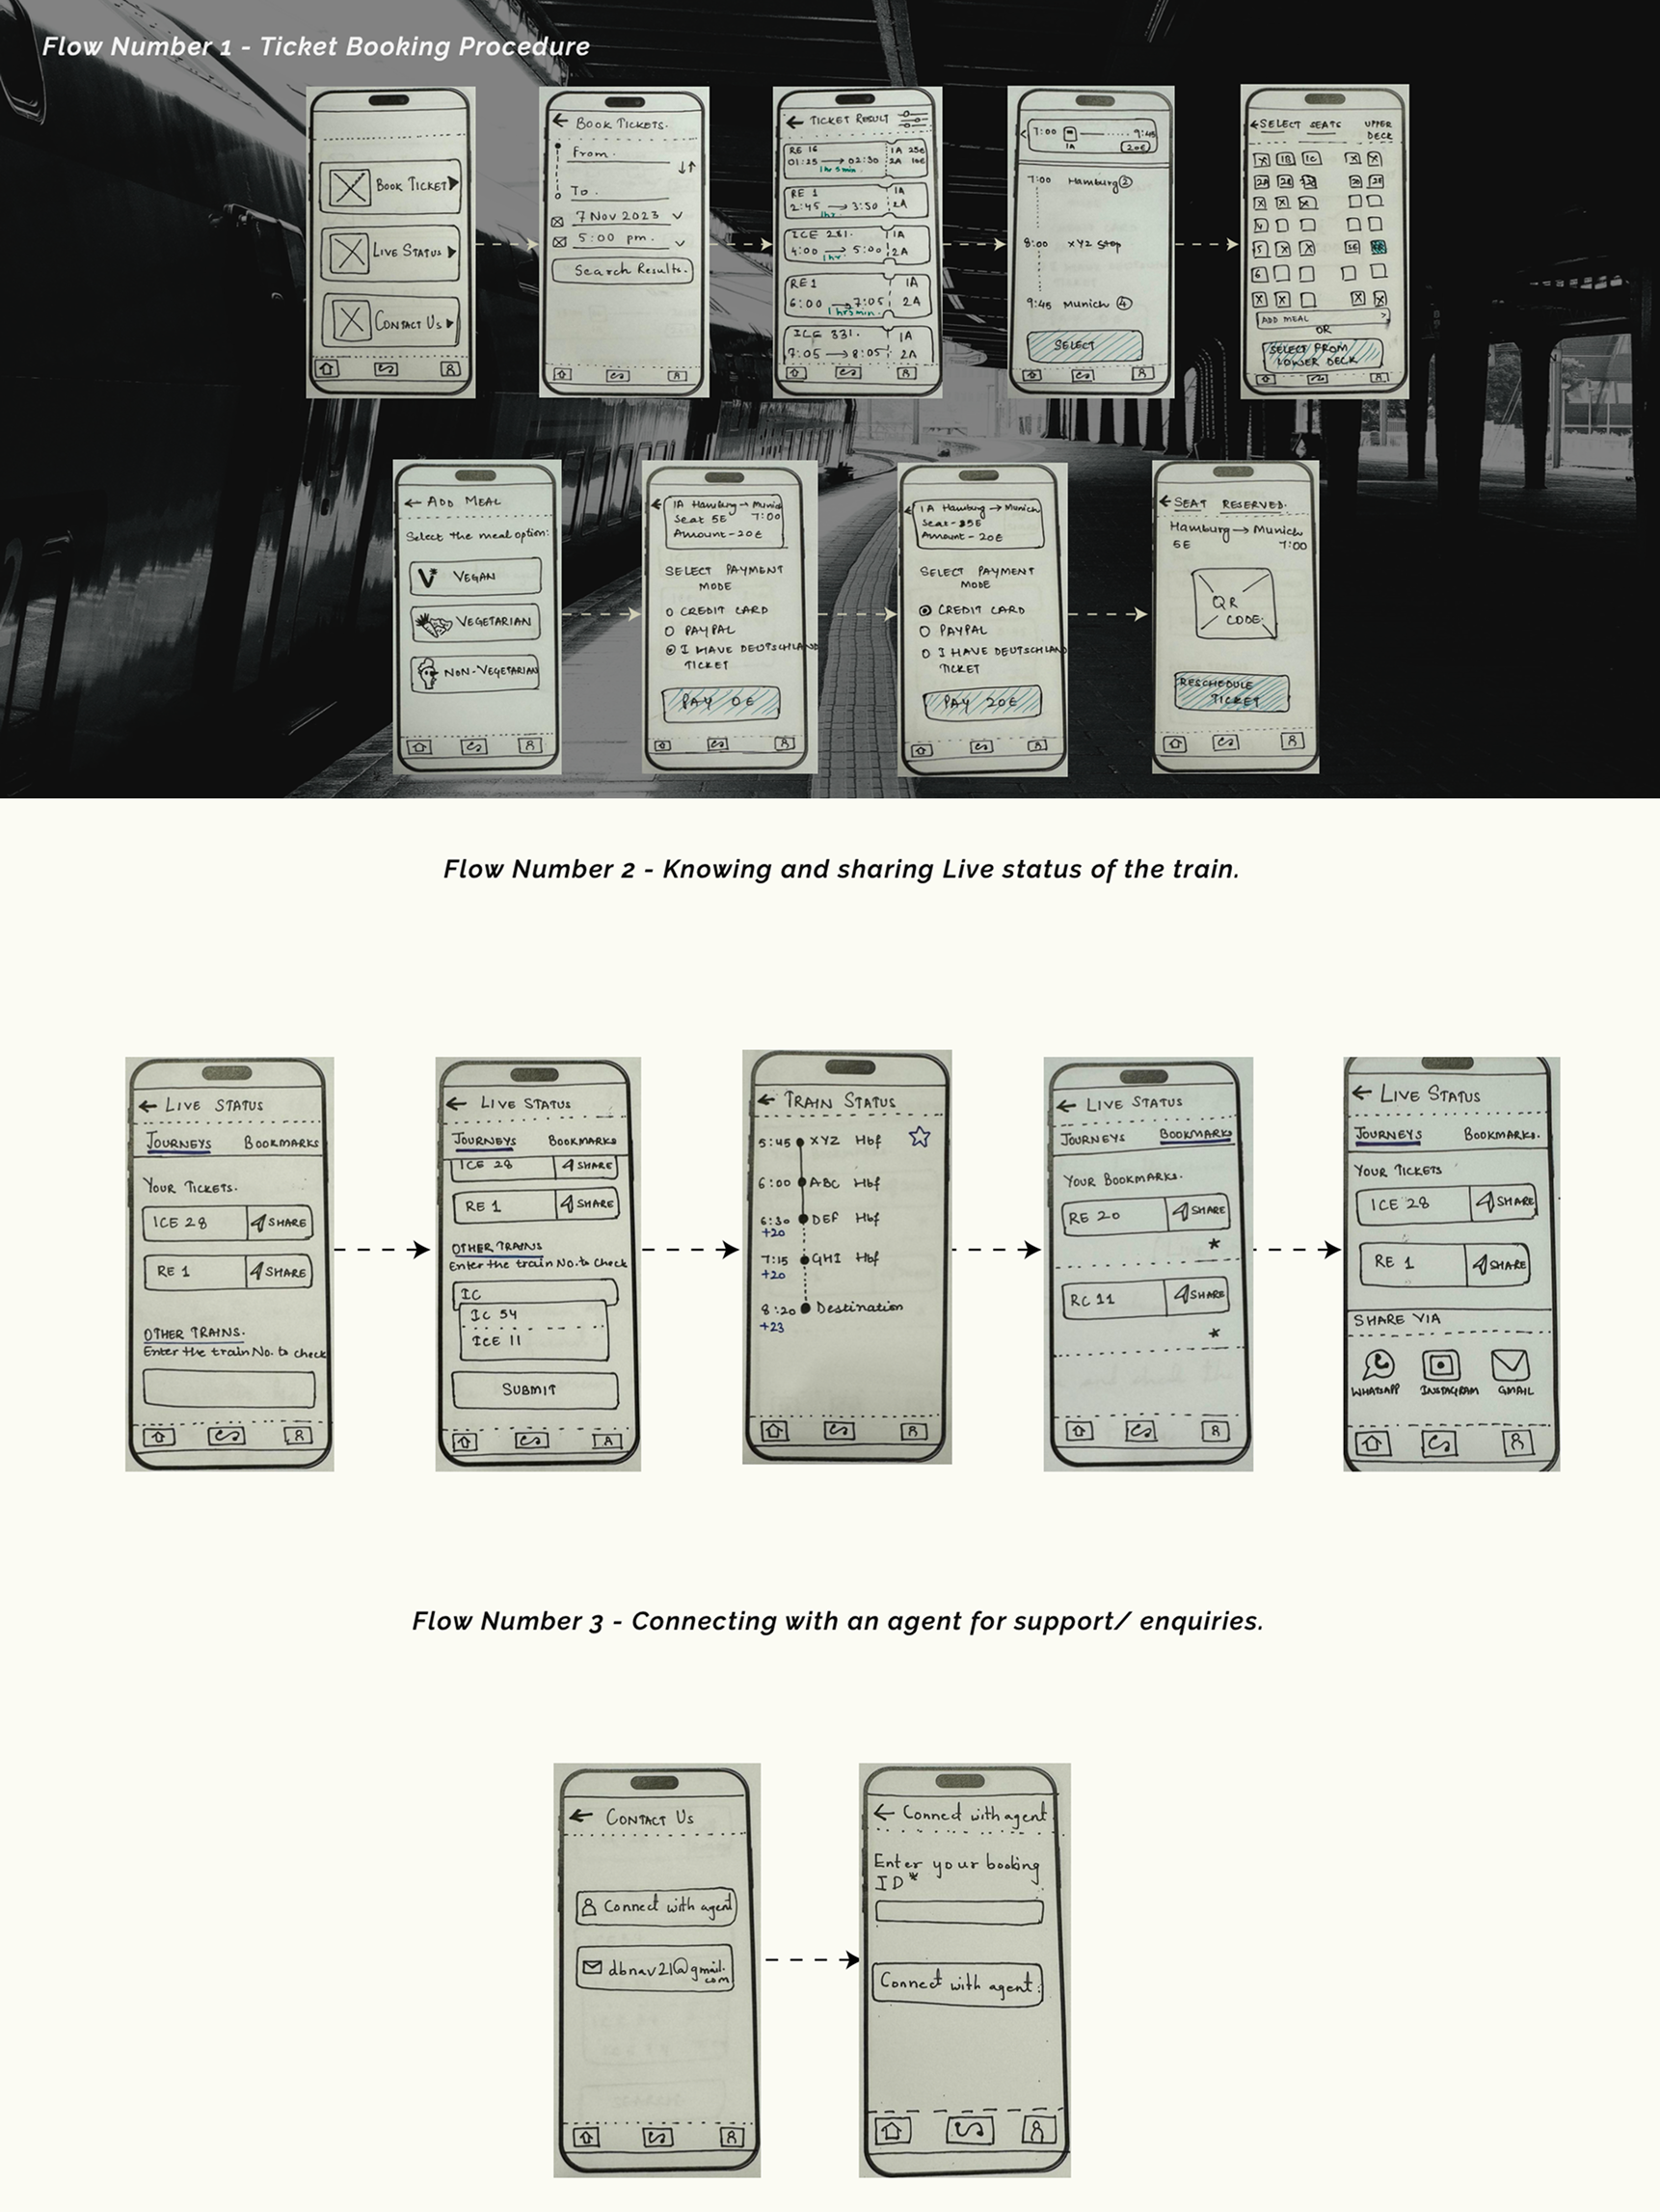 Flow Number 1 - Ticket Booking Procedure
BOOK TICKET
LIVE STATUS
CONTACT US
BOOK TICKETS.
From.
To.
7 Nov 2023
5:00 pm.
Search Results.
TICKET RESULT
RE 16
1A 25€
01:25 → 02:30
2A 10€
1hr 5min
RE 1
1A
2:45 → 3:50
2A
1hr
ICE 281.
1A
4:00 → 5:00
2A
1hr
RE1
1A
6:00 → 7:05
2A
1hr5min.
ICE 331.
1A
7:05 → 8:05
2A
7:00
9:45
1A
20€
7:00 Hamburg ②
8:00 XYZ Stop
9:45 Munich ④
SELECT
SELECT SEATS
UPPER
DECK
X 1B 1C X X
X X X
5 X X 5D
6
X X X X
ADD MEAL >
OR
SELECT FROM
LOWER DECK
ADD MEAL
Select the meal option:
V VEGAN
VEGETARIAN
NON-VEGETARIAN
1A Hamburg → Munich
Seat 5E 7:00
Amount - 20€
SELECT PAYMENT
MODE
CREDIT CARD
PAYPAL
I HAVE DEUTSCHLAND
TICKET
PAY 0€
1A Hamburg → Munich
Amount - 20€
SELECT PAYMENT
MODE
CREDIT CARD
PAYPAL
I HAVE DEUTSCHLAND
TICKET
PAY 20€
SEAT RESERVED.
Hamburg → Munich
5E 7:00
QR
CODE
RESCHEDULE
TICKET
Flow Number 2 - Knowing and sharing Live status of the train.
LIVE STATUS
JOURNEYS BOOKMARKS
YOUR TICKETS.
ICE 28 SHARE
RE 1 SHARE
OTHER TRAINS.
Enter the train No. to check
LIVE STATUS
JOURNEYS BOOKMARKS
ICE 28 SHARE
RE 1 SHARE
OTHER TRAINS
Enter the train No. to check
IC
IC 54
ICE 11
SUBMIT
TRAIN STATUS
5:45 XYZ Hbf
6:00 ABC Hbf
6:30 DEF Hbf
+20
7:15 GHI Hbf
+20
8:20 Destination
+23
LIVE STATUS
JOURNEYS BOOKMARKS
YOUR BOOKMARKS.
RE 20 SHARE
*
RC 11 SHARE
*
LIVE STATUS
JOURNEYS BOOKMARKS.
YOUR TICKETS
ICE 28 SHARE
RE 1 SHARE
SHARE VIA
WHATSAPP INSTAGRAM GMAIL
Flow Number 3 - Connecting with an agent for support/ enquiries.
CONTACT US
Connect with agent
dbnav21@gmail.
com
Connect with agent
Enter your booking
ID*
Connect with agent.